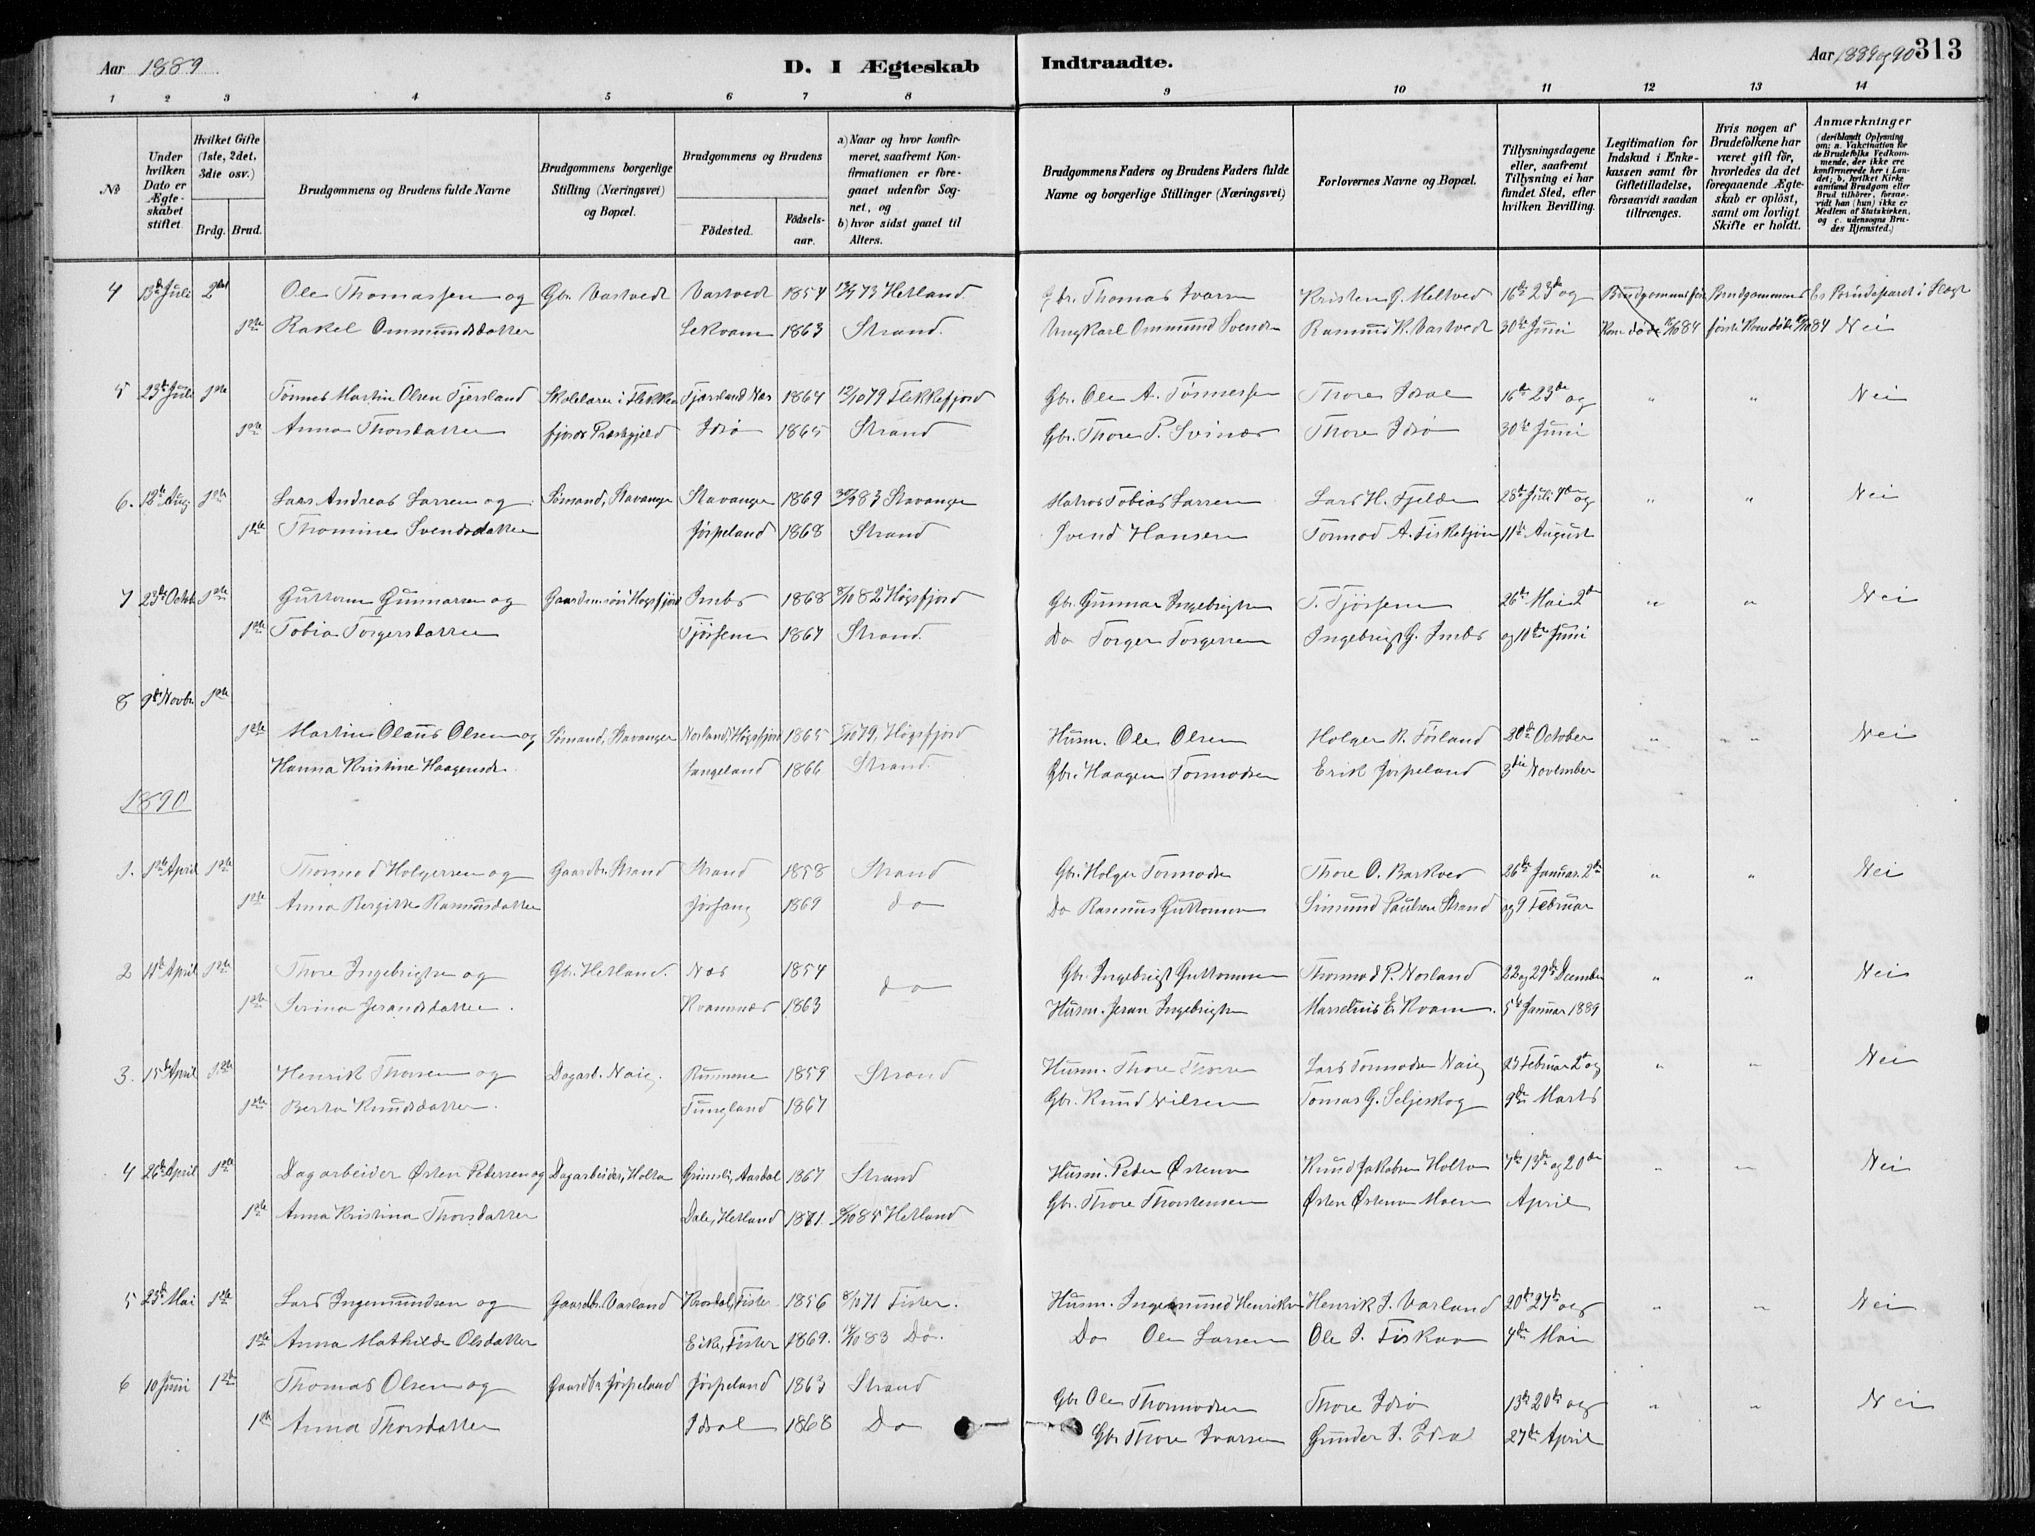 Aar 1889. D. I Ægteskab Indtraadte. Aar 1889 og 90 313
1 2 3 4 5 6 7 8 9 10 11 12 13 14
No
Under hvilken Dato er Ægteskabet stiftet.
Hvilket Gifte (1ste, 2det, 3die osv.)
Brdg. Brud.
Brudgommens og Brudens fulde Navne
Brudgommens borgerlige Stilling (Næringsvei) og Bopæl.
Brudgommens og Brudens
Födested. Födsels-aar.
a) Naar og hvor konfirmeret, saafremt Konfirmationen er foregaaet udenfor Sognet, og
b) hvor sidst gaaet til Alters.
Brudgommens Faders og Brudens Faders fulde Navne og borgerlige Stillinger (Næringsvei)
Forlovernes Navne og Bopæl.
Tillysningsdagene eller, saafremt Tillysning ei har fundet Sted, efter hvilken Bevilling.
Legitimation for Indskud i Enkekassen samt for Giftetilladelse, forsaavidt saadan tiltrænges.
Hvis nogen af Brudefolkene har været gift för, hvorledes da det foregaaende Ægteskab er oplöst, samt om lovligt Skifte er holdt.
Anmærkninger (deriblandt Oplysning om: a. Vakcination for de Brudefolks Vedkommende, der ikke ere konfirmerede her i Landet; b. hvilket Kirkesamfund Brudgom eller Brud tilhörer, forsaavidt han (hun) ikke er Medlem af Statskirken, og c. udensogns Brudes Hjemsted.)
4 13de Juli 2det Ole Thomassen og Gbr. Vastvedt Vastvedt 1854 73 Hetland. Gbr. Thomas Ivarsen Kristen G. Meltved 16de 23de og Brudgommens Brudgommens Brudeparet i Slegt
1ste Rakel Ommundsdatter Lekvam 1863 Strand. Ungkarl Ommund Svendsen Rasmus K. Vastvedt 30te Juni Kone döde 84 förste Kone döde 84 Nei
5 23de Juli 1ste Tönnes Martin Olsen Tjersland Skolelærer i Flekke Tjersland Næs 1864 12/10 79 Flekkefjord Gbr. Ole A. Tönnessen Thore Idsal 16de 23de og " " Nei
1ste Anna Thorsdatter fjords Præstegjeld Idsö 1865 Strand Gbr. Thore P. Svinæs Thore Idsö 30te Juni
6. 12te Aug. 1ste Lars Andreas Larsen og Sömand, Stavanger Stavanger 1869 83 Stavanger Matros Tobias Larsen Lars H. Fjelde 28de Juli 4de og " " Nei
1ste Thomine Svendsdatter Jörpeland 1868 Strand Svend Hansen Tormod A. Fisketjön 11te August
7 23de Octob 1ste Guttorm Gunnarsen og Gaardmand i Högsfjord Imbs 1868 8/10 82 Högsfjord Gbr. Gunnar Ingebrigtsen T. Tjörsen 26de Mai 2den " " Nei
1ste Tobia Torgersdatter Tjörsene 1867 Strand. Do Torger Torgersen Ingebrigt G. Imbs og 10de Juni
8 9de Novbr 1ste
1ste Martin Olaus Olsen og Sömand, Stavanger Norland, Högsfjord 1865 5/10 79. Högsfjord Husm. Ole Olsen Holger R. Försand 30de October " " Nei
Hanna Kristine Haagensd. Tangeland 1866 Strand. Gbr. Haagen Tormodsen Erik Jörpeland 3die November
1890
1. 1ste April 1ste Thormod Holgersen og Gaardbr. Strand Strand 1858 Strand Gbr. Holger Tormodsen Thore O. Barkved 26de Januar. 2den " " Nei
1ste Anna Bergitte Rasmusdatter Jörfang 1869 do Do Rasmus Guttormsen Simund Paulsen Strand og 9 Februar
2 11te April 1ste Thore Ingebrigtsen og Gbr. Hetland. Næs 1854 do Gbr. Ingebrigt Guttormsen Thormod P. Norland 22 og 29de December " " Nei
1ste Serina Jerandsdatter. Kvamnæs 1863 Husm. Jeran Ingebrigtsen Marselius E. Kvam. 5te Januar 1889
3. 15de April 1ste Henrik Thorsen og Dagarb. Naig. Rumme 1859 Strand Husm. Thore Thorsen Lars Tormodsen Naig 23 Februar 2den og " " Nei
1ste Berta Knudsdatter. Tungland 1867 Gbr. Knud Nilsen Tomas G. Seljeskog 9de Marts
4 26de April 1ste Dagarbeider Östen Pedersen og Dagarbeider, Holta Grimsli, Aardal 1867 Strand Husm. Peder Östensen Knud Jakobsen Holta 7de 13de og 20de " " Nei
1ste Anna Kristina Thorsdatter Dale, Hetland 1871. 85 Hetland Gbr. Thore Thorstensen Östen Östensen Moen April
5 23de Mai 1ste Lars Ingemundsen og Gaardbr. Varland Krosdal, Fister 1856 8/10 71 Fister. Husm. Ingemund Henriksen Henrik J. Varland 20de 27de og " " Nei
1ste Anna Mathilde Olsdatter Eike, Fister 1869. 14/10 83 Do. Do Ole Larsen Ole J. Fiskaa 4de Mai
6 10 Juni 1ste Thomas Olsen og Gaardbr Jörpeland Jörpeland 1863 Strand Gbr Ole Thormodsen Thore Idsö 13de 20de og " " Nei
1ste Anna Thorsdatter Idsal 1868 Do Gbr Thore Ivarsen Gunder I. Idsal 27de April